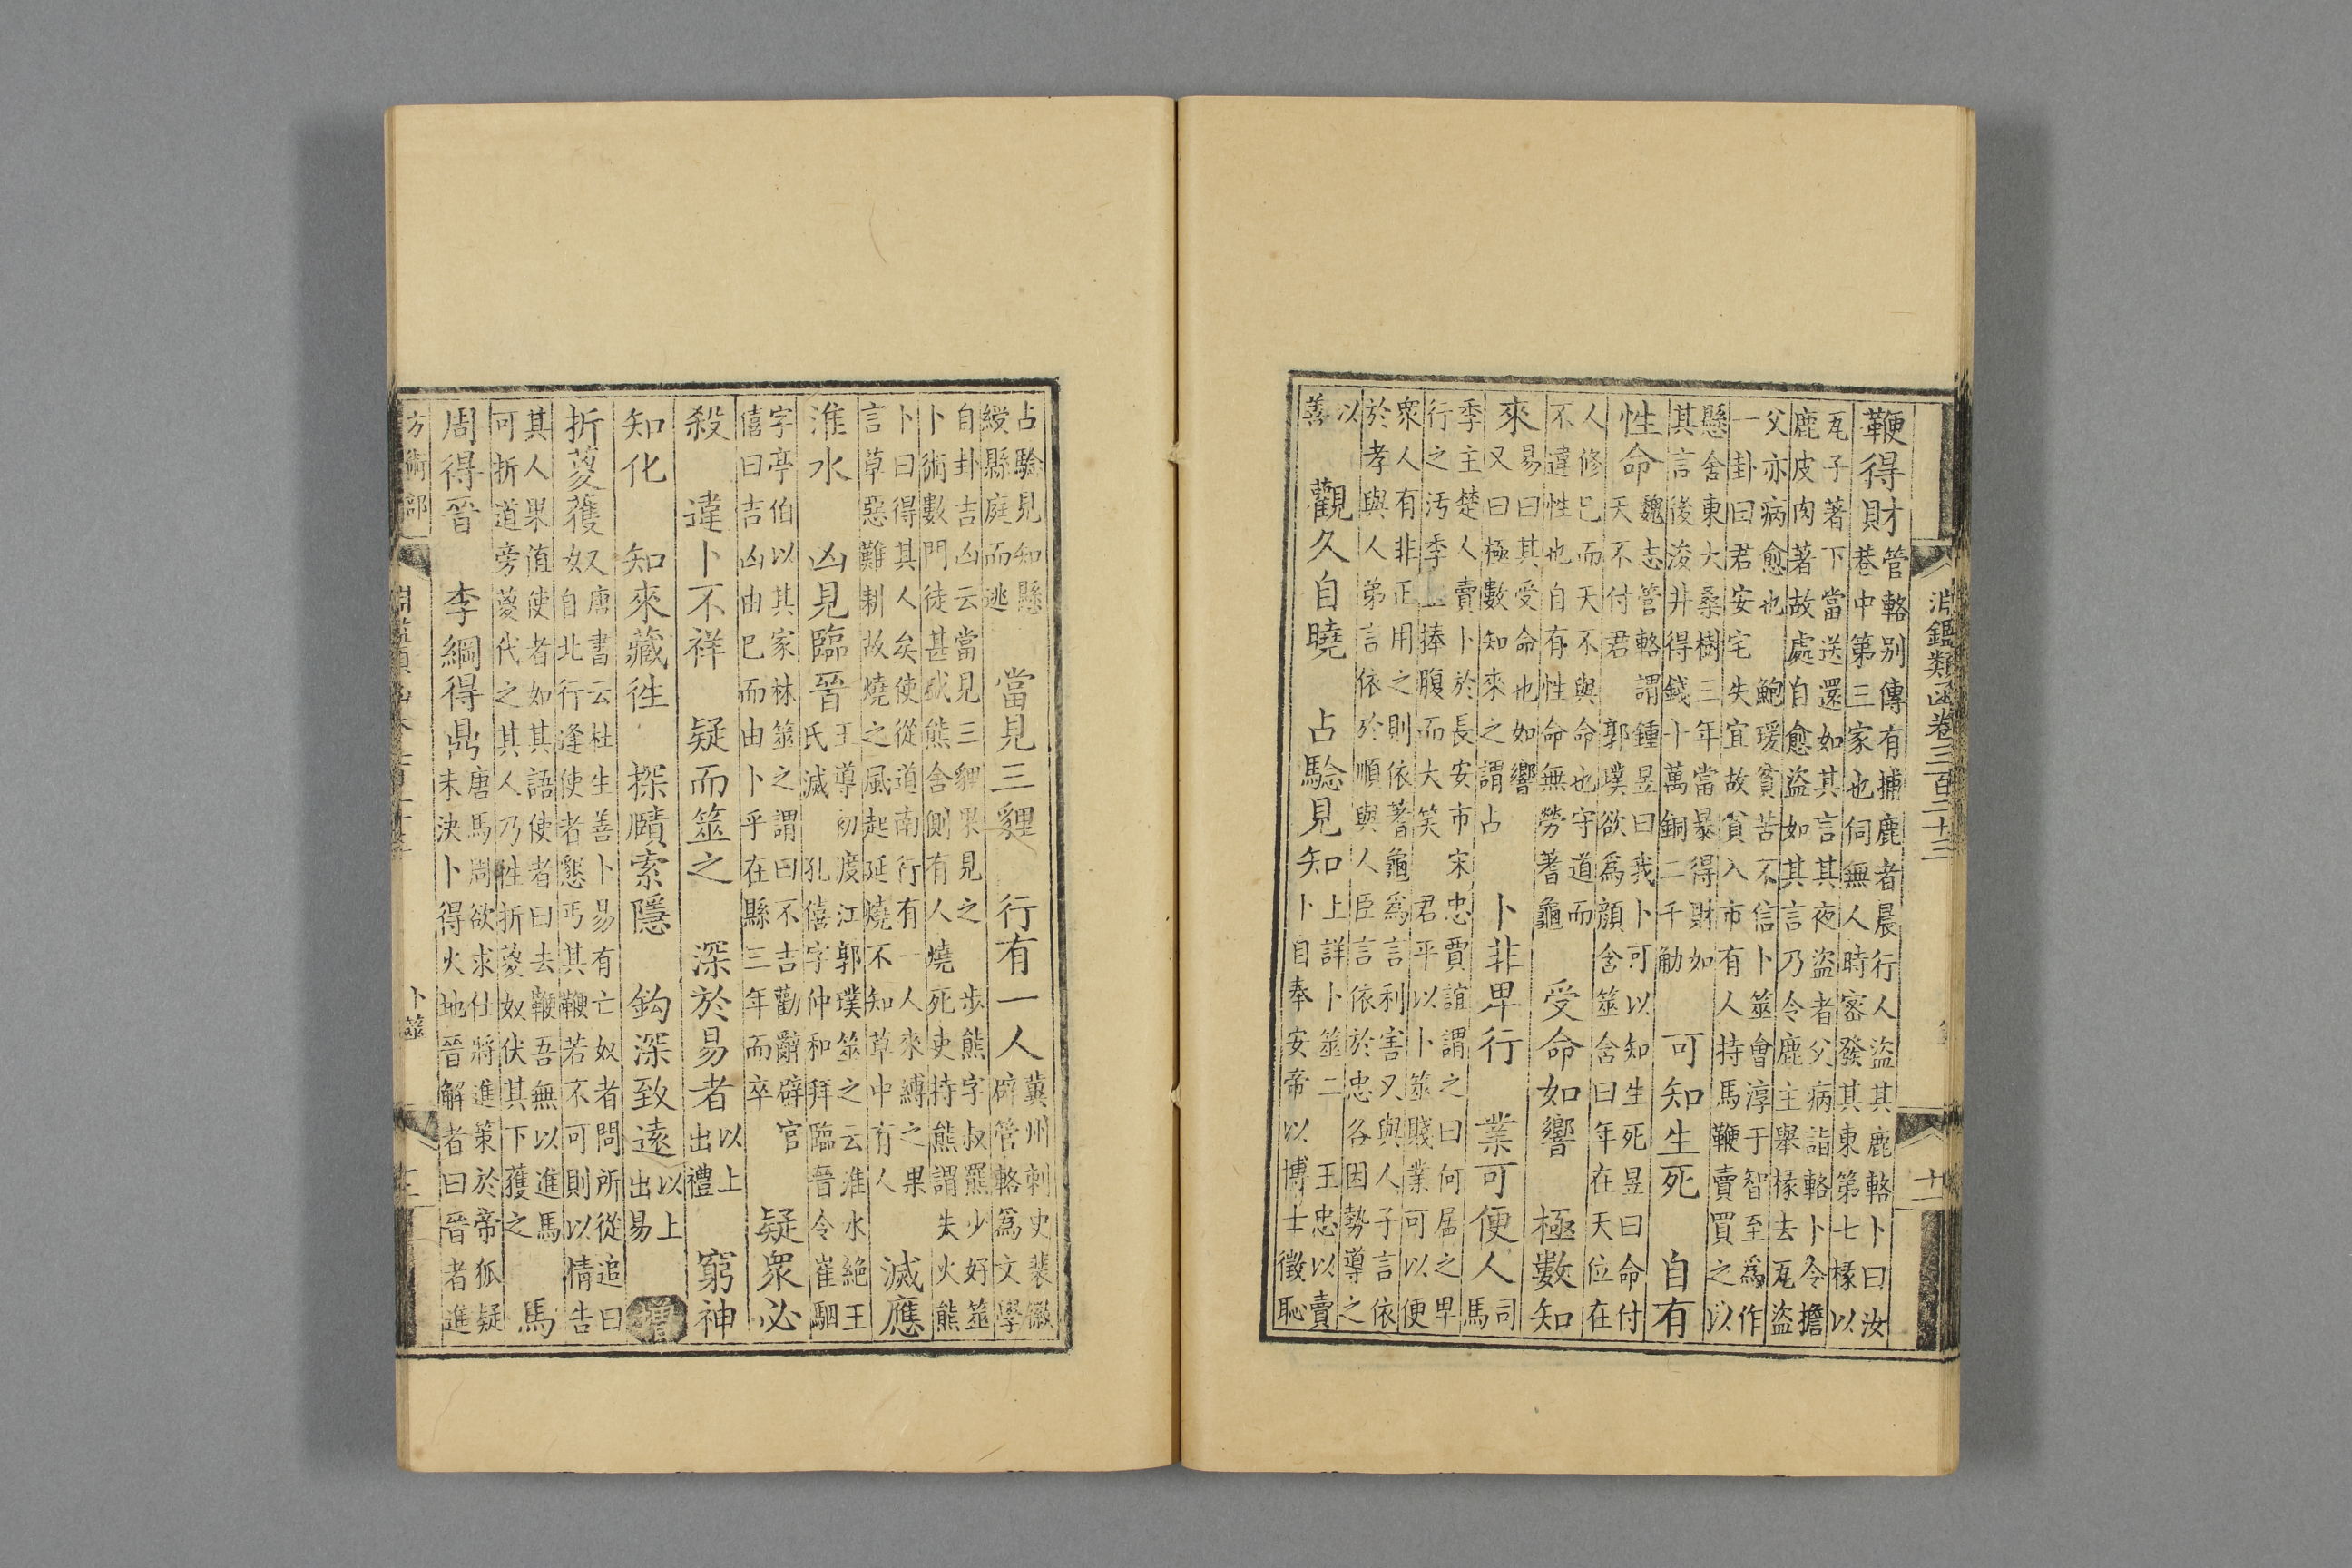 淵鑑類函卷三百二十三 十一
鞭得財
管輅别傳有捕鹿者晨行人盜其鹿輅卜曰汝
巷中第三家也伺無人時密發其東第七椽以
瓦子著下當送還如其言其夜盜者父病詣輅卜令擔
鹿皮肉著故處自愈盜如其言乃令鹿主舉椽去瓦盜
父亦病愈也 鮑瑗貧苦不信卜筮會淳于智至爲作
一卦曰君安宅失宜故貧入市有人持馬鞭賣買之以
懸舍東大桑樹三年當暴得財如
其言後浚井得錢十萬銅二千觔
可知生死 自有
性命
魏志管輅謂鍾昱曰我卜可以知生死昱曰命付
天不付君 郭璞欲爲顏含筮含曰年在天位在
人修巳而天不與命也守道而
不違性也自有性命無勞蓍龜
受命如響 極數知
來
易曰其受命也如響
又曰極數知來之謂占
卜非卑行 業可便人
司
馬
季主楚人賣卜於長安市宋忠賈誼謂之曰何居之卑
行之汚季主捧腹而大笑 君平以卜筮賤業可以便
衆人有非正用之則依蓍龜爲言利害又與人子言依
於孝與人弟言依於順與人臣言依於忠各因勢導之
以
善
觀久自曉 占騐見知
上詳卜筮二 王忠以賣
卜自奉安帝以博士徵恥
占騐見知縣
綬縣庭而逃
當見三貍 行有一人
冀州刺史裴徽
辟管輅爲文學
自卦吉凶云當見三貍果見之 步熊字叔羆少好筮
卜術數門徒甚盛熊舍側有人燒死吏持熊謂失火熊
卜曰得其人矣使從道南行有一人來縛之果
言草惡難耕故燒之風起延燒不知草中有人
滅應
淮水 凶見臨晉
王導初渡江郭璞筮之云淮水絕王
氏滅 孔僖字仲和拜臨晉令崔駰
字亭伯以其家林筮之謂曰不吉勸辭辟官
僖曰吉凶由巳而由卜乎在縣三年而卒
疑衆必
殺 違卜不祥 疑而筮之 深於易者
以上
出禮
窮神
知化 知來藏徃 探賾索隱 鈎深致遠
以上
出易
增
折葼獲
又唐書云杜生善卜易有亡奴者問所從追曰
奴自北行逢使者懇丐其鞭若不可則以情告
其人果值使者如其語使者曰去鞭吾無以進馬
可折道旁葼代之其人乃徃折葼奴伏其下獲之
馬
周得晉 李綱得鼎
唐馬周欲求仕將進策於帝狐疑
未決卜得火地晉解者曰晉者進
方術部 卜筮